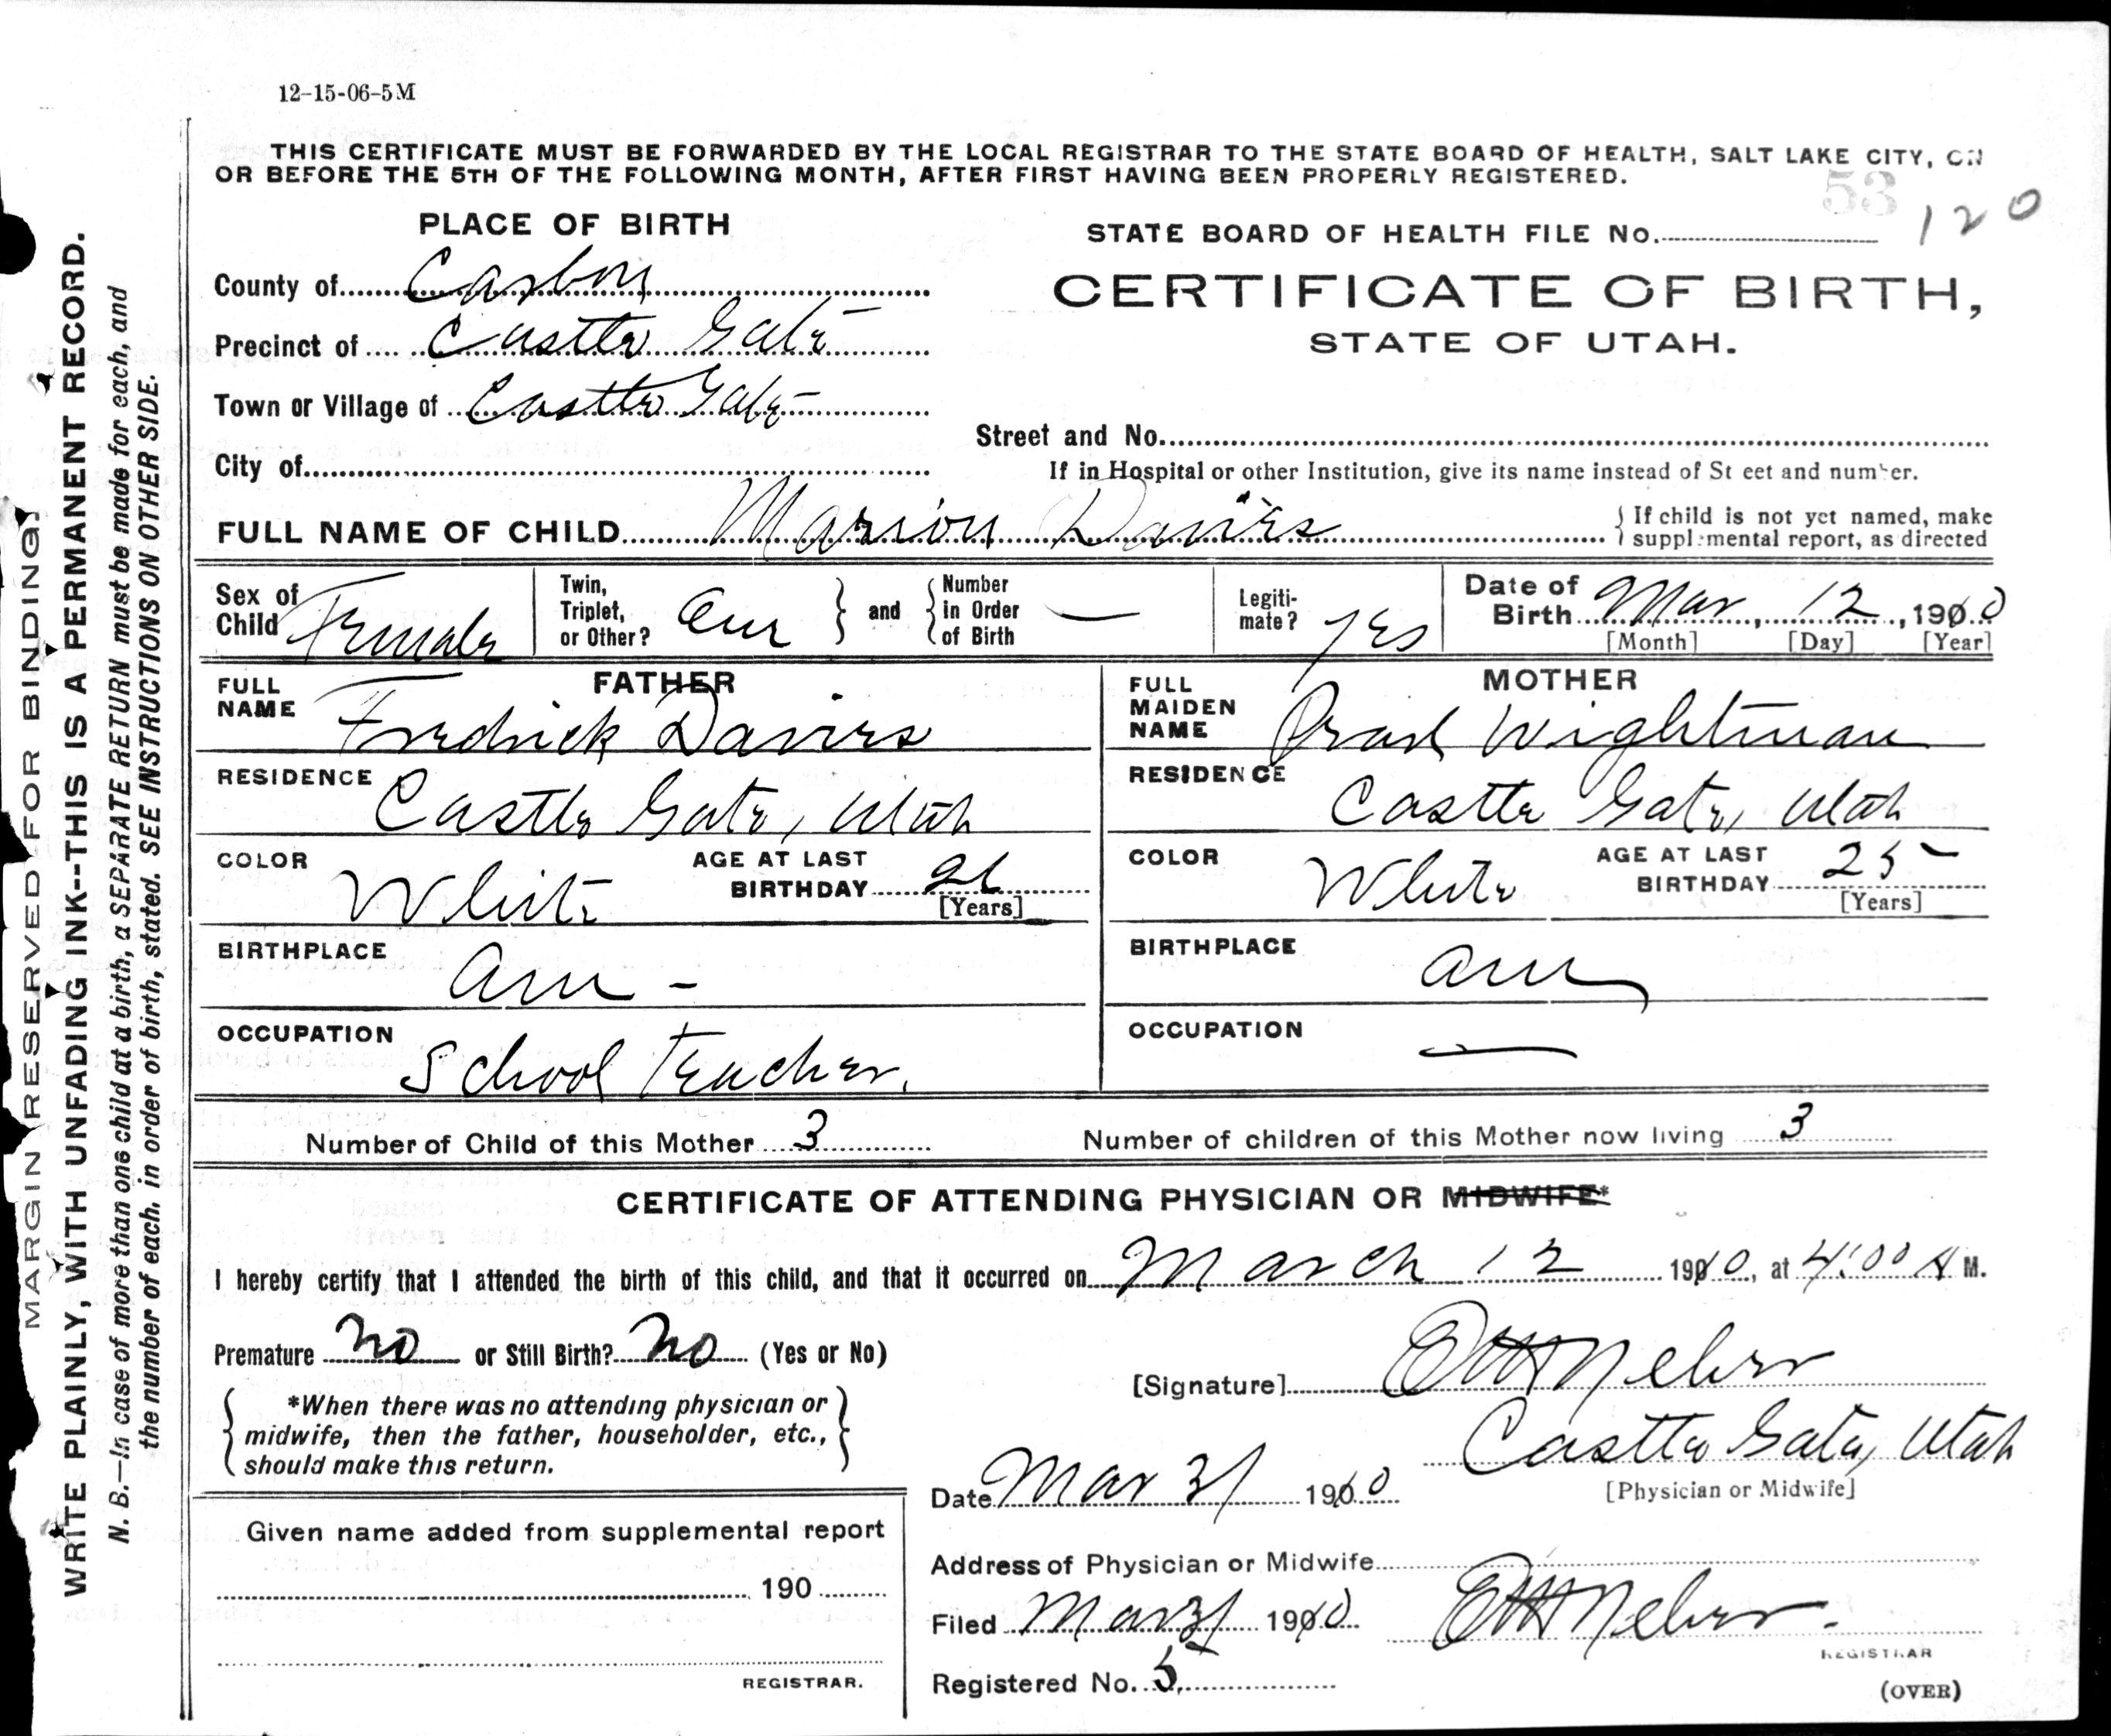 12-15-06-5M
THIS CERTIFICATE MUST BE FORWARDED BY THE LOCAL REGISTRAR TO THE STATE BOARD OF HEALTH, SALT LAKE CITY, ON
OR BEFORE THE 5TH OF THE FOLLOWING MONTH, AFTER FIRST HAVING BEEN PROPERLY REGISTERED.
53
120
PLACE OF BIRTH
STATE BOARD OF HEALTH FILE No.
County of Carbon
CERTIFICATE OF BIRTH,
Precinct of Castle Gate
STATE OF UTAH.
Town or Village of Castle Gate
Street and No.
City of
If in Hospital or other Institution, give its name instead of St eet and number.
FULL NAME OF CHILD Marion Davies
If child is not yet named, make
supplemental report, as directed
Sex of Child Female
Twin, Triplet, or Other?
and
Number in Order of Birth —
Legiti-mate? Yes
Date of Birth Mar 12, 1910
[Month] [Day] [Year]
FATHER
FULL NAME Fredrick Davies
RESIDENCE Castle Gate, Utah
COLOR White
AGE AT LAST BIRTHDAY 26
[Years]
BIRTHPLACE am -
OCCUPATION School Teacher.
MOTHER
FULL MAIDEN NAME Pearl Wightman
RESIDENCE Castle Gate, Utah
COLOR White
AGE AT LAST BIRTHDAY 25 -
[Years]
BIRTHPLACE am
OCCUPATION —
Number of Child of this Mother 3
Number of children of this Mother now living 3
CERTIFICATE OF ATTENDING PHYSICIAN OR MIDWIFE*
I hereby certify that I attended the birth of this child, and that it occurred on March 12 1910, at 4:00 A M.
Premature no or Still Birth? no (Yes or No)
*When there was no attending physician or
midwife, then the father, householder, etc.,
should make this return.
[Signature]
Castle Gate, Utah
[Physician or Midwife]
Date Mar 31 1910
Given name added from supplemental report
190
REGISTRAR.
Address of Physician or Midwife
Filed Mar 31 1910
REGISTRAR
Registered No. 5
(OVER)
MARGIN RESERVED FOR BINDING.
WRITE PLAINLY, WITH UNFADING INK--THIS IS A PERMANENT RECORD.
N. B.—In case of more than one child at a birth, a SEPARATE RETURN must be made for each, and
the number of each, in order of birth, stated. SEE INSTRUCTIONS ON OTHER SIDE.